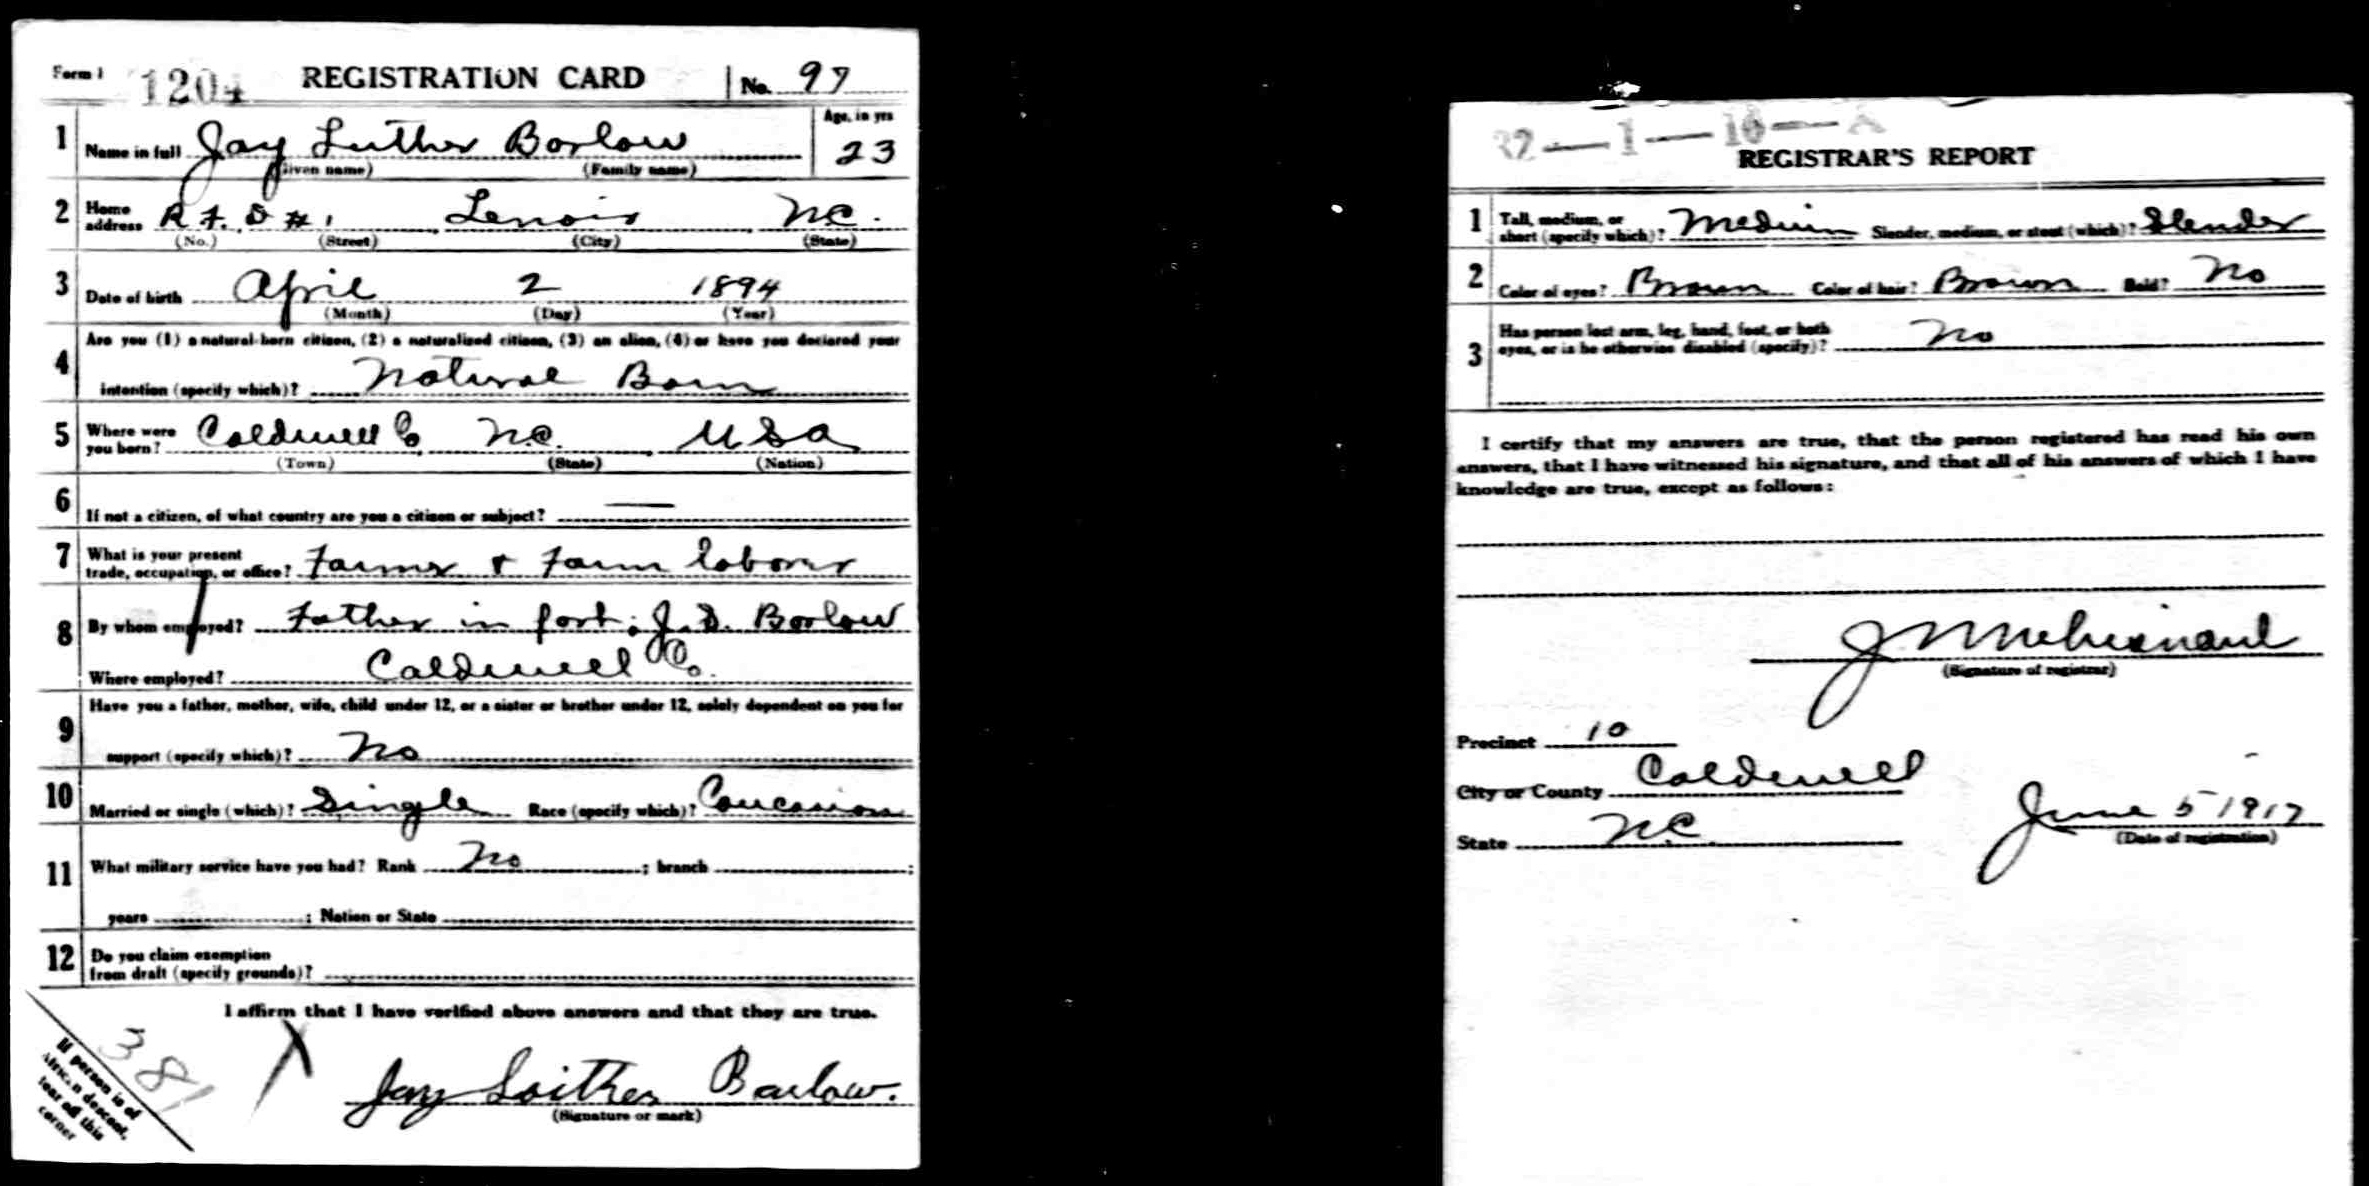 Form 1 1204 REGISTRATION CARD No. 97
1 Name in full Jay Luther Barlow Age, in yrs 23
(Given name) (Family name)
2 Home address R.F.D #1 Lenoir N.C.
(No.) (Street) (City) (State)
3 Date of birth April 2 1894
(Month) (Day) (Year)
4 Are you (1) a natural-born citizen, (2) a naturalized citizen, (3) an alien, (4) or have you declared your
intention (specify which)? Natural Born
5 Where were you born? Caldwell Co N.C. USA
(Town) (State) (Nation)
6 If not a citizen, of what country are you a citizen or subject? —
7 What is your present trade, occupation, or office? Farmer + Farm laborer
8 By whom employed? Father in part; J.D. Barlow
Where employed? Caldwell Co.
9 Have you a father, mother, wife, child under 12, or a sister or brother under 12, solely dependent on you for
support (specify which)? No
10 Married or single (which)? Single Race (specify which)? Caucasian
11 What military service have you had? Rank No ; branch ;
years ; Nation or State
12 Do you claim exemption
from draft (specify grounds)?
I affirm that I have verified above answers and that they are true.
Jay Luither Barlow.
(Signature or mark)
If person is of
African descent,
tear off this
corner
381
32—1—10—A
REGISTRAR'S REPORT
1 Tall, medium, or short (specify which)? Medium Slender, medium, or stout (which)? Slender
2 Color of eyes? Brown Color of hair? Brown Bald? No
3 Has person lost arm, leg, hand, foot, or both
eyes, or is he otherwise disabled (specify)? No
I certify that my answers are true, that the person registered has read his own
answers, that I have witnessed his signature, and that all of his answers of which I have
knowledge are true, except as follows:
(Signature of registrar)
Precinct 10
City or County Caldwell
State NC June 5 1917
(Date of registration)